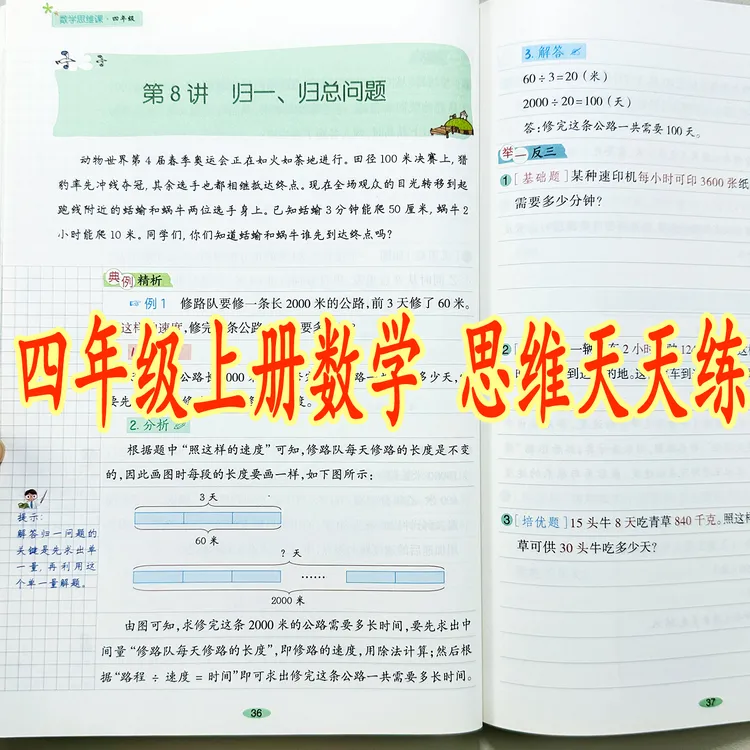 数学思维课·四年级
第8讲 归一、归总问题
动物世界第4届春季奥运会正在如火如荼地进行。田径100米决赛上,猎
豹率先冲线夺冠,其余选手也都相继抵达终点。现在全场观众的目光转移到起
跑线附近的蛞蝓和蜗牛两位选手身上。已知蛞蝓3分钟能爬50厘米,蜗牛2
小时能爬10米。同学们,你们知道蛞蝓和蜗牛谁先到达终点吗?
典例精析
例1 修路队要修一条长2000米的公路,前3天修了60米。
速度,修完
条公路
要
公路长
000米
2.分析
根据题中“照这样的速度”可知,修路队每天修路的长度是不变
的,因此画图时每段的长度要画一样,如下图所示:
3天
60米
?天
……
2000米
提示:
解答归一问题的
关键是先求出单
一量,再利用这
个单一量解题。
由图可知,求修完这条2000米的公路需要多长时间,要先求出中
间量“修路队每天修路的长度”,即修路的速度,用除法计算;然后根
据“路程÷速度=时间”即可求出修完这条公路一共需要多长时间。
36
3.解答
60÷3=20(米)
2000÷20=100(天)
答:修完这条公路一共需要100天。
举一反三
1[基础题]某种速印机每小时可印3600张纸
需要多少分钟?
2
一辆
车2小时
3[培优题]15头牛8天吃青草840千克。照这样
草可供30头牛吃多少天?
37
四年级上册数学 思维天天练